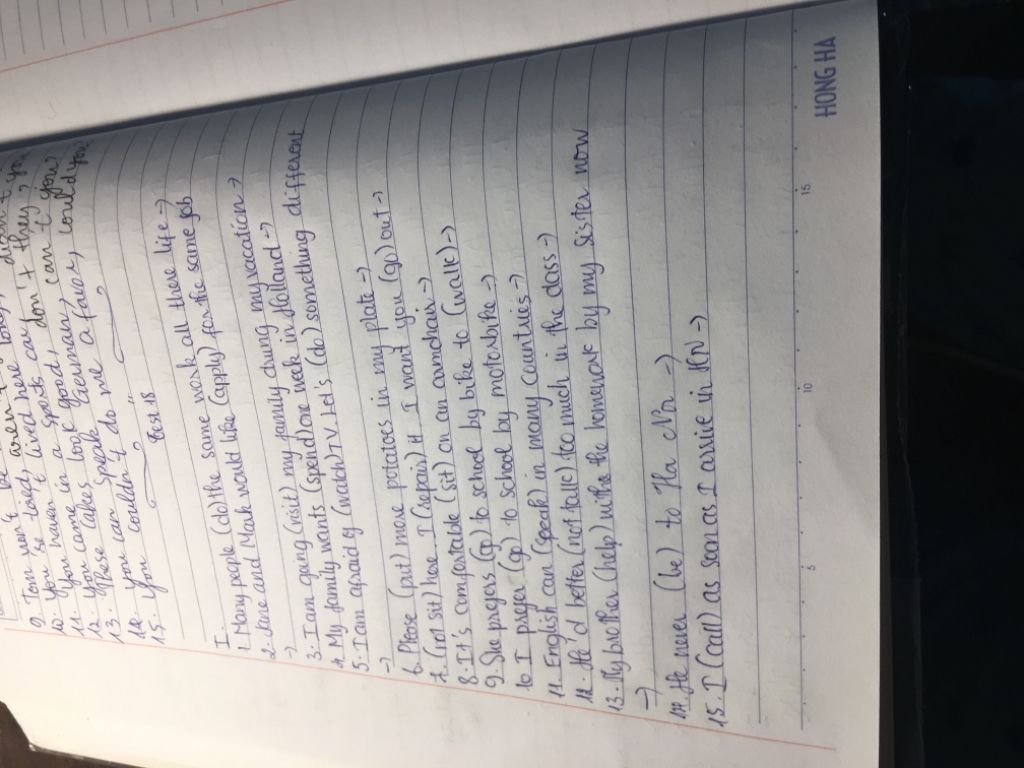 9. You
10. You haven't lived here long,
11. You came in a sports car,
12. You cakes look good, don't they
13. These can speak German, can't you
14. You can do me a favor, could you
15. You couldn't
Test 18
I.
1. Many people (do) the same work all there life →
2. Jane and Mark would like (apply) for the same job
→
3. I am going (visit) my family during my vacation →
4. My family wants (spend) one week in Holland →
5. I am afraid of (watch) TV. Let's (do) something different
→
6. Please (put) more potatoes in my plate →
7. (not sit) here. I (repair) it I want you (go) out →
8. It's comfortable (sit) on an armchair →
9. She prefers (go) to school by bike to (walk) →
10. I prefer (go) to school by motorbike →
11. English can (speak) in many countries →
12. He'd better (not talk) too much in the class →
13. My brother (help) with the homework by my sister now
→
14. He never (be) to Ha Noi →
15. I (call) as soon as I arrive in HN →
5 10 15
HONG HA